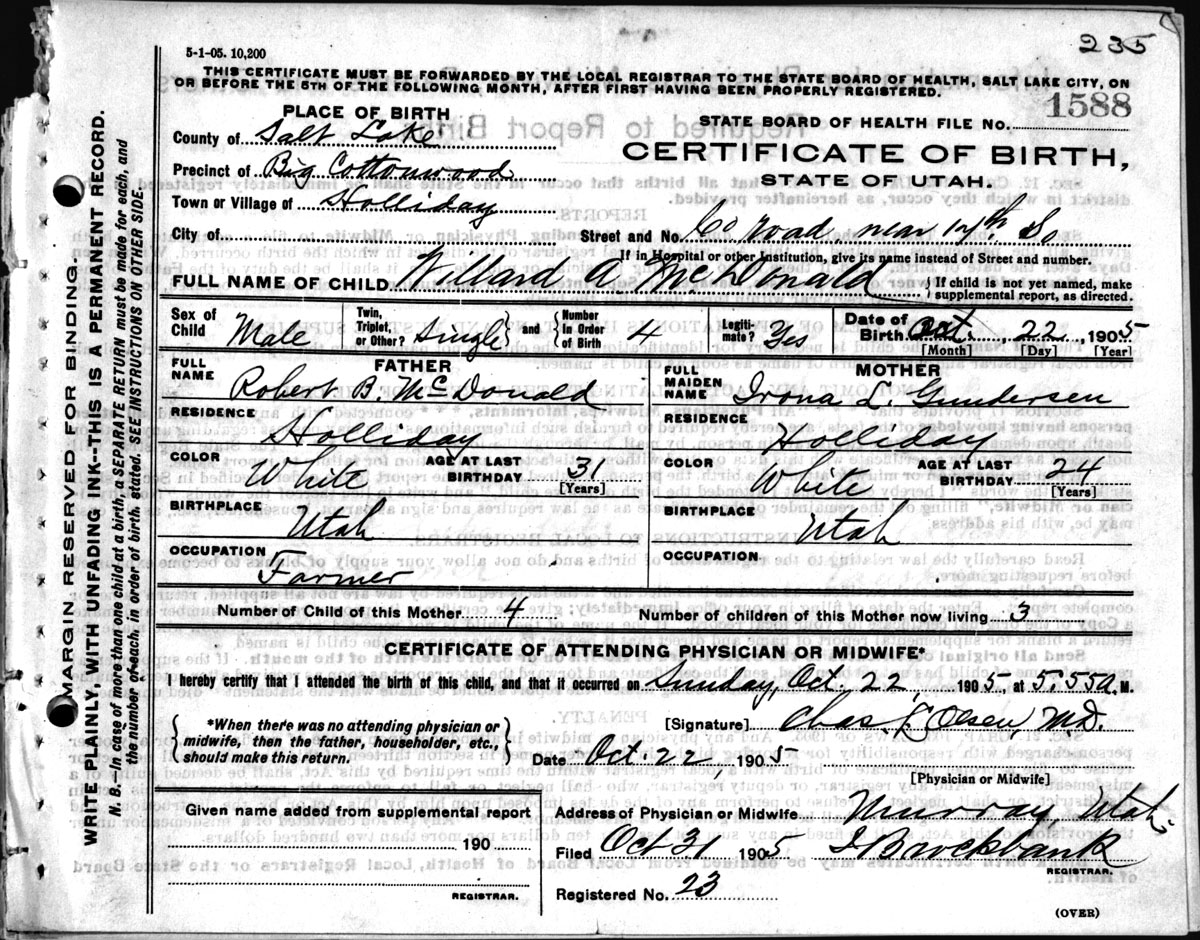 235
5-1-05. 10,200
THIS CERTIFICATE MUST BE FORWARDED BY THE LOCAL REGISTRAR TO THE STATE BOARD OF HEALTH, SALT LAKE CITY, ON
OR BEFORE THE 5TH OF THE FOLLOWING MONTH, AFTER FIRST HAVING BEEN PROPERLY REGISTERED.
PLACE OF BIRTH
STATE BOARD OF HEALTH FILE NO. 1588
County of Salt Lake
CERTIFICATE OF BIRTH,
Precinct of Big Cottonwood
STATE OF UTAH.
Town or Village of Holliday
City of
Street and No. Co road, near 14th So
If in Hospital or other Institution, give its name instead of Street and number.
FULL NAME OF CHILD Willard A McDonald { If child is not yet named, make supplemental report, as directed.
Sex of Child Male Twin, Triplet, or Other? Single } and { Number in Order of Birth 4 Legitimate? Yes Date of Birth Oct. 22, 1905
[Month] [Day] [Year]
FATHER
MOTHER
FULL NAME Robert B. McDonald
FULL MAIDEN NAME Irona L. Gundersen
RESIDENCE Holliday
RESIDENCE Holliday
COLOR White AGE AT LAST BIRTHDAY 31 [Years]
COLOR White AGE AT LAST BIRTHDAY 24 [Years]
BIRTHPLACE Utah
BIRTHPLACE Utah
OCCUPATION Farmer
OCCUPATION
Number of Child of this Mother 4 Number of children of this Mother now living 3
CERTIFICATE OF ATTENDING PHYSICIAN OR MIDWIFE*
I hereby certify that I attended the birth of this child, and that it occurred on Sunday, Oct. 22, 1905, at 5:55 A. M.
{ *When there was no attending physician or midwife, then the father, householder, etc., should make this return. }
[Signature] Chas. L. Olsen, M.D.
Date Oct. 22, 1905
[Physician or Midwife]
Given name added from supplemental report
190
REGISTRAR.
Address of Physician or Midwife Murray, Utah.
Filed Oct 31 1905 I Brockbank
REGISTRAR.
Registered No. 23
(OVER)
MARGIN RESERVED FOR BINDING.
WRITE PLAINLY, WITH UNFADING INK--THIS IS A PERMANENT RECORD.
N. B.--In case of more than one child at a birth, a SEPARATE RETURN must be made for each, and
the number of each, in order of birth, stated. SEE INSTRUCTIONS ON OTHER SIDE